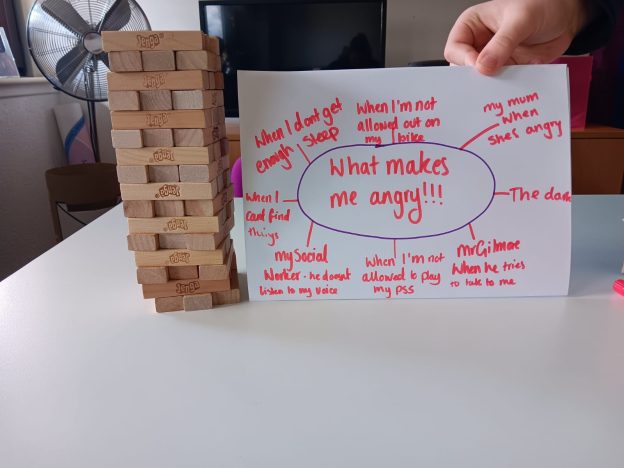 What makes
me angry!!!
When I'm not
allowed out on
my bike
my mum
when
she's angry
The dark
Mr Gilmore
When he tries
to talk to me
When I'm not
allowed to play
my PS5
my Social
Worker - he doesnt
listen to my voice
When I
cant find
things
When I dont get
enough sleep
Jenga
Jenga
Jenga
Jenga
Jenga
Jenga
Jenga